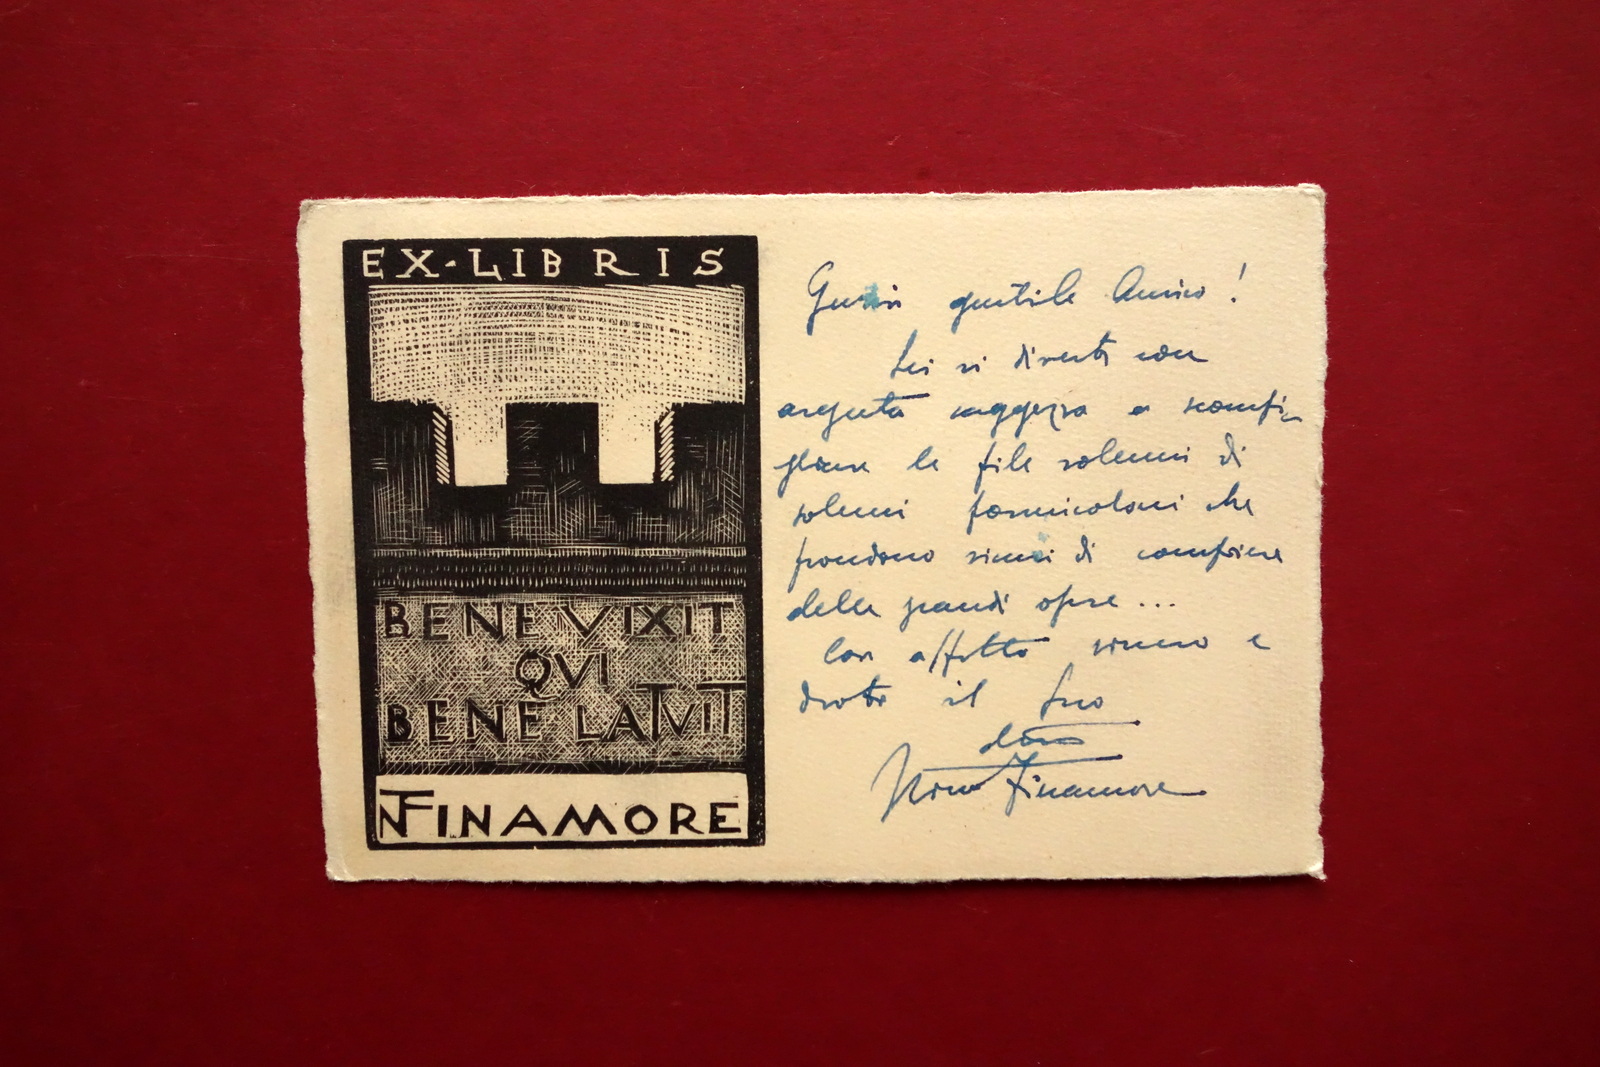 EX-LIBRIS
BENE VIXIT
QVI
BENE LATVIT
NFINAMORE
gentile Amico!
Lei si diverte con
arguta saggezza a scompi-
gliare le file solenni di
solenni formicoloni che
credono di compiere
delle grandi opere...
Con affetto sincero e
devoto il Suo
Nino Finamore